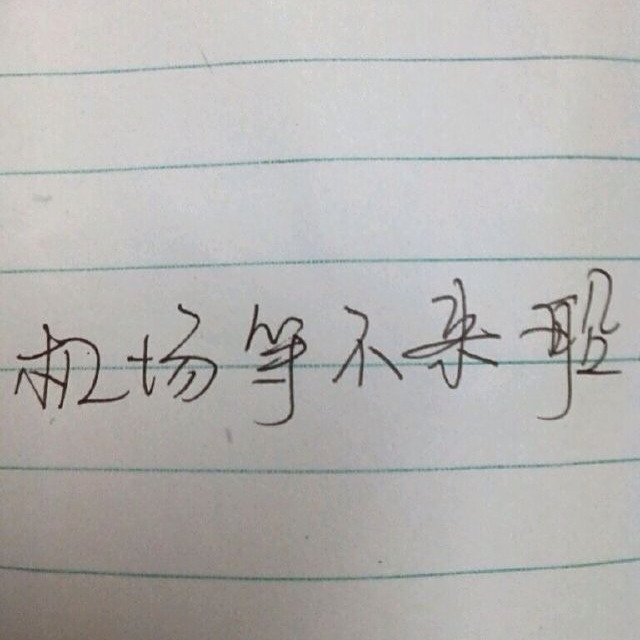 机场等不来船